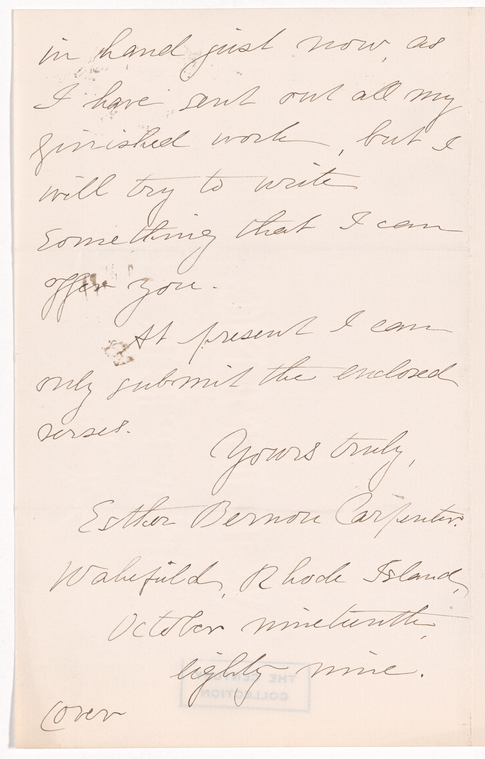 in hand just now, as
I have sent out all my
finished work, but I
will try to write
something that I can
offer you.
At present I can
only submit the enclosed
verses.
Yours truly,
Esther Bernon Carpenter.
Wakefield, Rhode Island,
October nineteenth,
eighty nine.
(over
THE CENTURY
COLLECTION